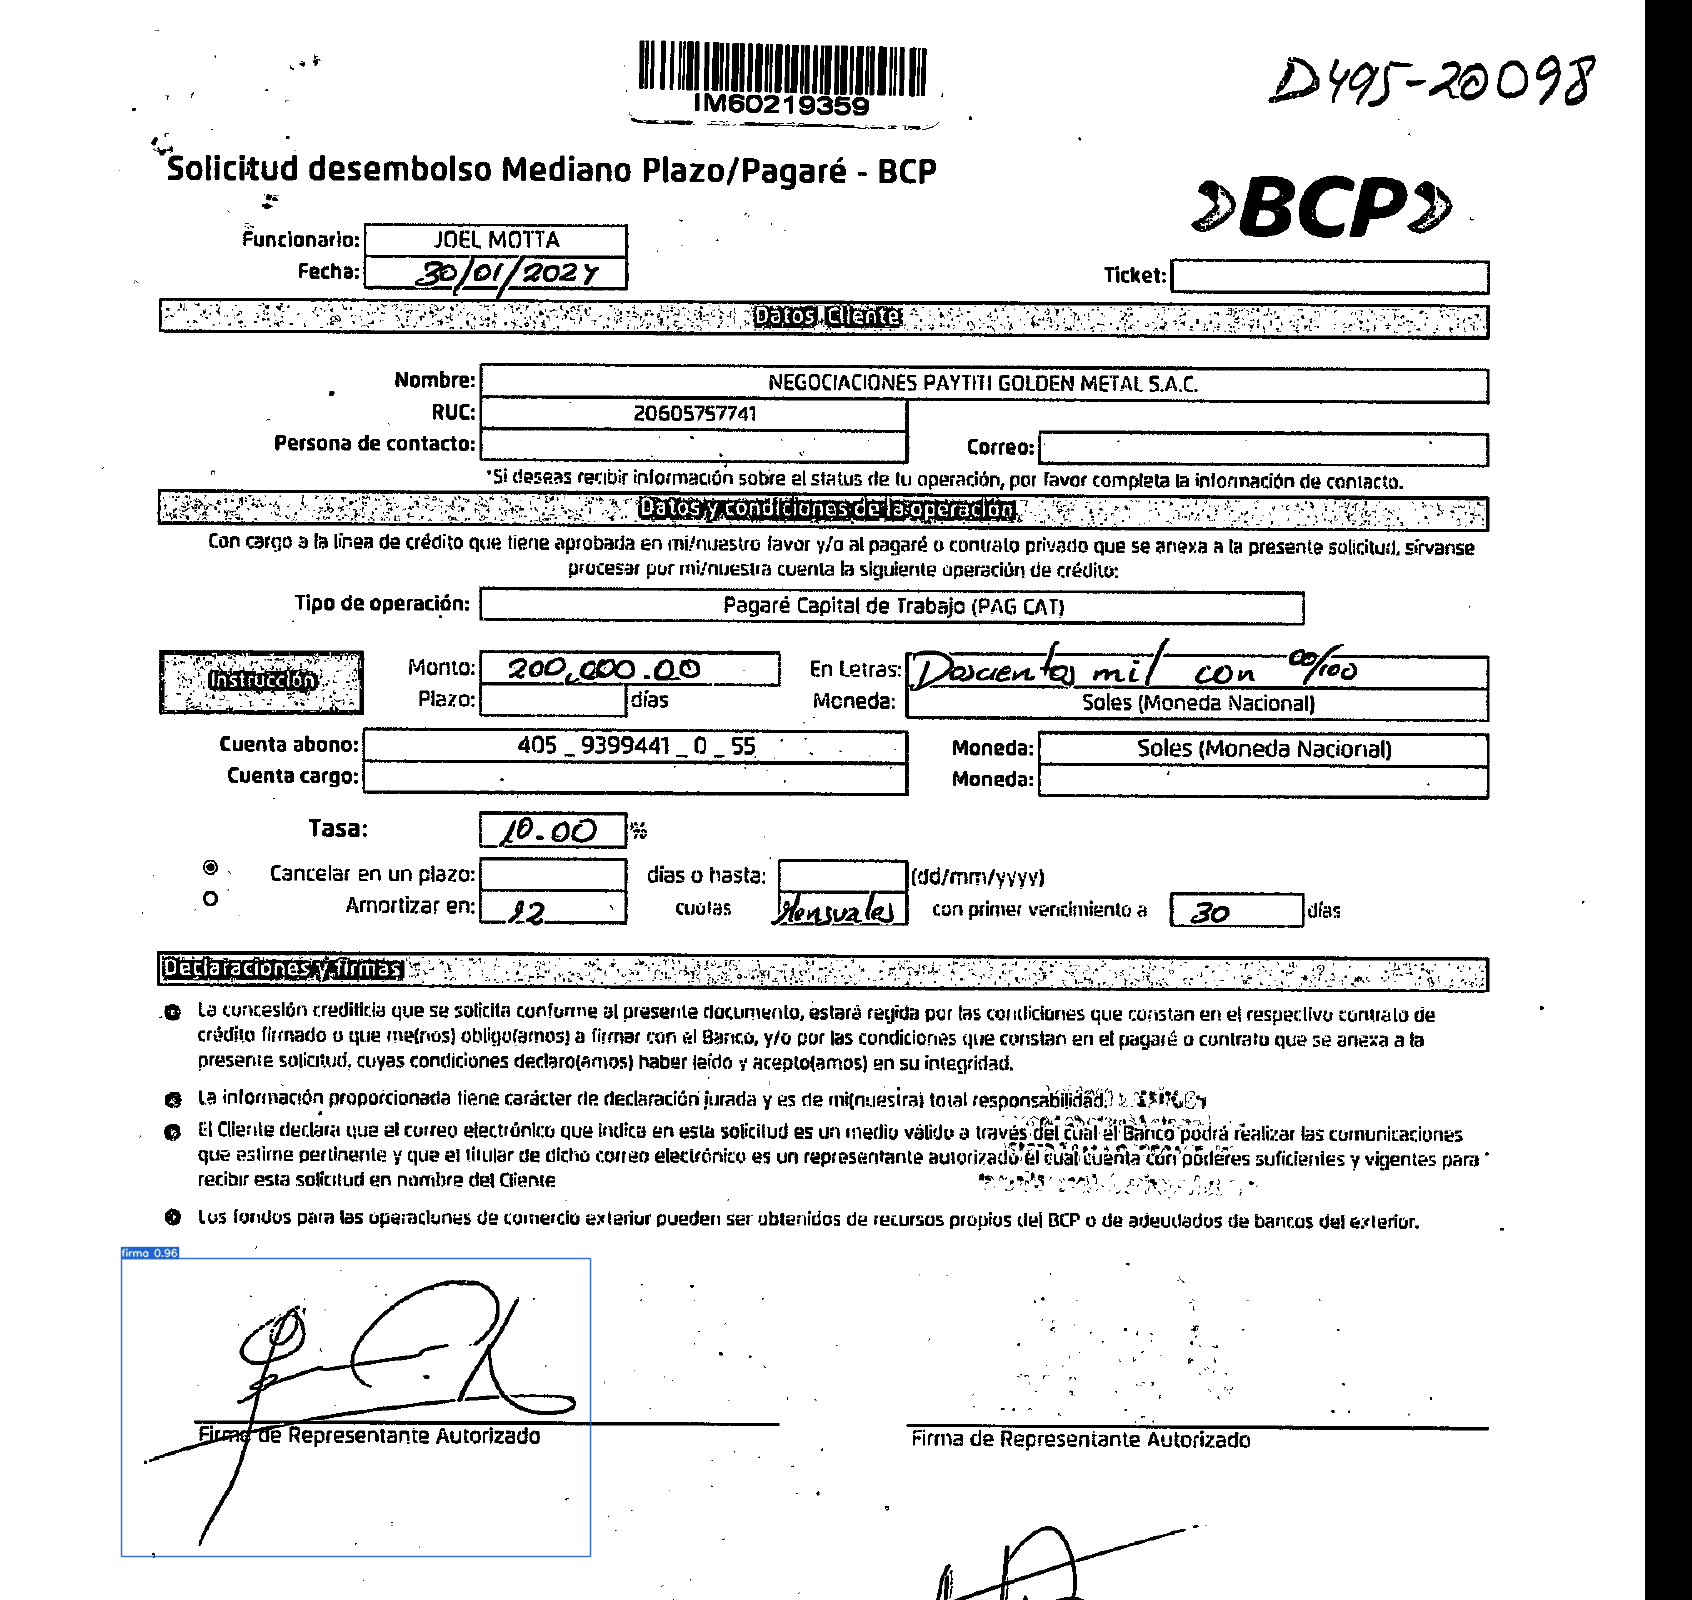 IM60219359
D495-20098
Solicitud desembolso Mediano Plazo/Pagaré - BCP
BCP
Funcionario: JOEL MOTTA
Fecha: 30/01/2024
Ticket:
Datos Cliente
Nombre: NEGOCIACIONES PAYTITI GOLDEN METAL S.A.C.
RUC: 20605757741
Persona de contacto: Correo:
*Si deseas recibir información sobre el status de tu operación, por favor completa la información de contacto.
Datos y condiciones de la operación
Con cargo a la línea de crédito que tiene aprobada en mi/nuestro favor y/o al pagaré o contrato privado que se anexa a la presente solicitud, sírvanse
procesar por mi/nuestra cuenta la siguiente operación de crédito:
Tipo de operación: Pagaré Capital de Trabajo (PAG CAT)
Instrucción
Monto: 200,000.00 En Letras: Doscientos mil con 00/100
Plazo: días Moneda: Soles (Moneda Nacional)
Cuenta abono: 405 _ 9399441 _ 0 _ 55 Moneda: Soles (Moneda Nacional)
Cuenta cargo: Moneda:
Tasa: 10.00 %
Cancelar en un plazo: días o hasta: (dd/mm/yyyy)
Amortizar en: 12 cuotas Mensuales con primer vencimiento a 30 días
Declaraciones y firmas
La concesión crediticia que se solicita conforme al presente documento, estará regida por las condiciones que constan en el respectivo contrato de
crédito firmado o que me(nos) obligo(amos) a firmar con el Banco, y/o por las condiciones que constan en el pagaré o contrato que se anexa a la
presente solicitud, cuyas condiciones declaro(amos) haber leído y acepto(amos) en su integridad.
La información proporcionada tiene carácter de declaración jurada y es de mi(nuestra) total responsabilidad.
El Cliente declara que el correo electrónico que indica en esta solicitud es un medio válido a través del cual el Banco podrá realizar las comunicaciones
que estime pertinente y que el titular de dicho correo electrónico es un representante autorizado el cual cuenta con poderes suficientes y vigentes para
recibir esta solicitud en nombre del Cliente
Los fondos para las operaciones de comercio exterior pueden ser obtenidos de recursos propios del BCP o de adeudados de bancos del exterior.
firma 0.96
Firma de Representante Autorizado
Firma de Representante Autorizado